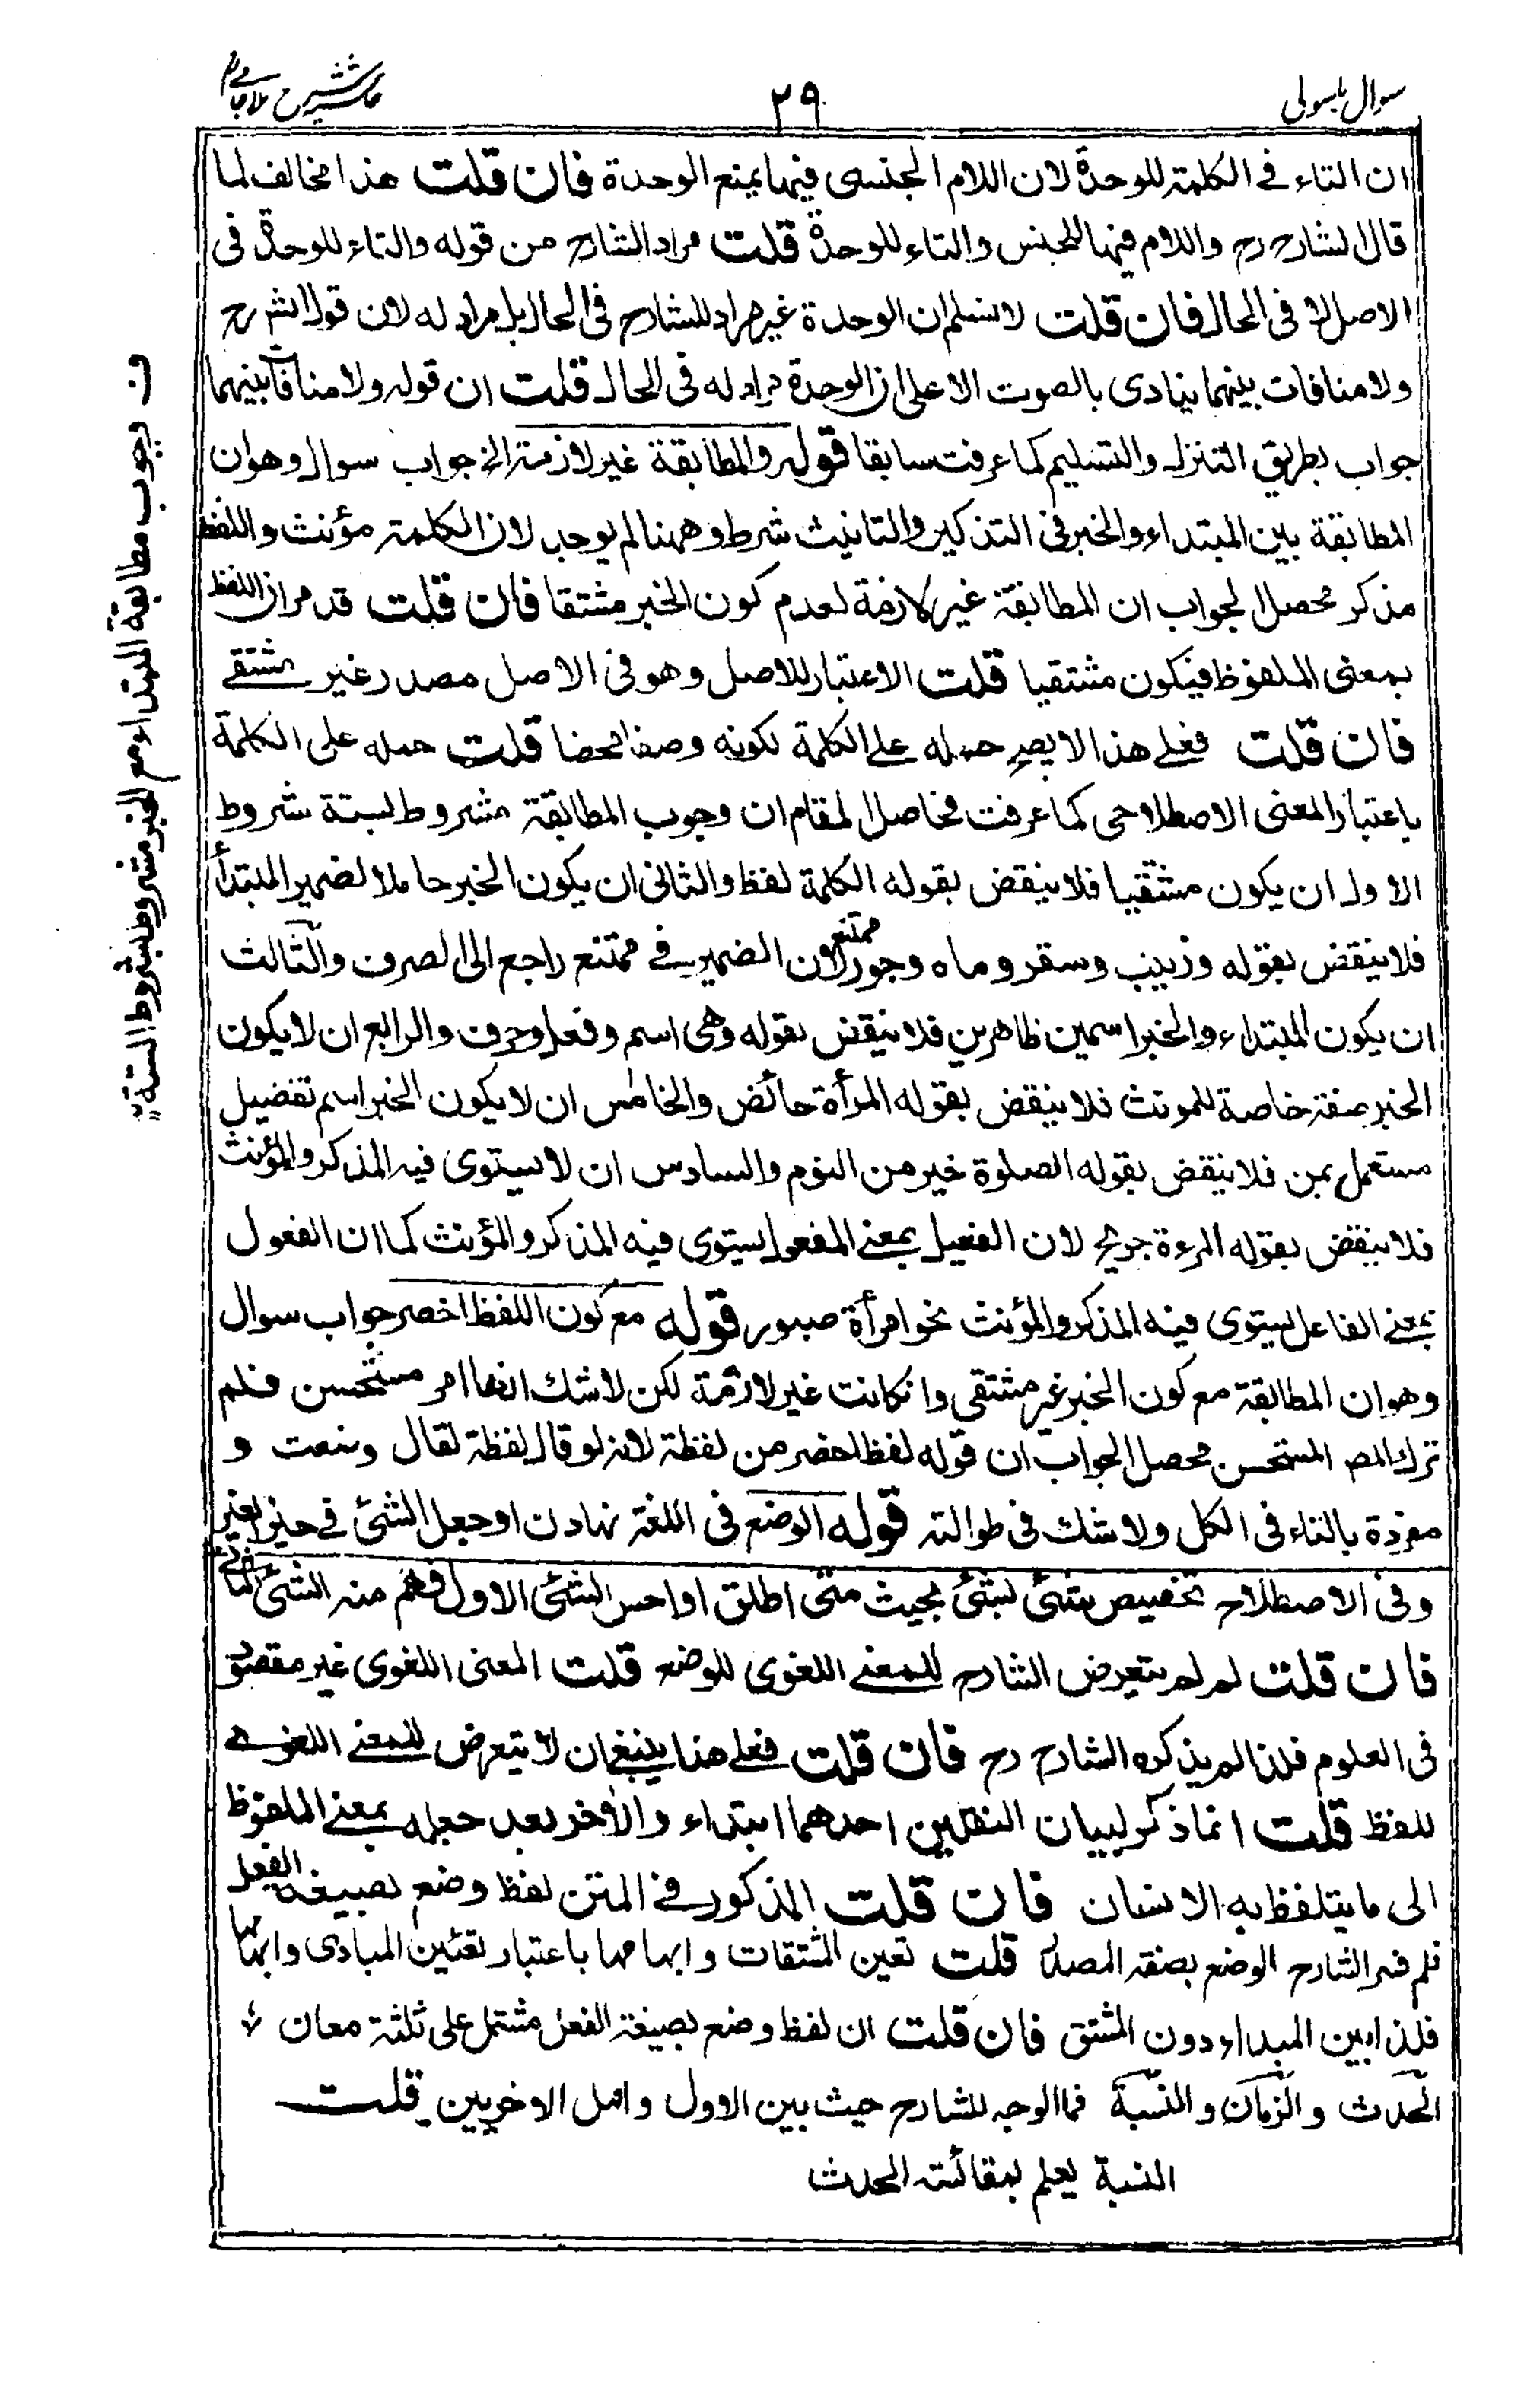 سوال باسولی
۲۹
حاشیه شرح ملا جامی
ان التاء فے الكلمة للوحدة لان اللام الجنسی فیها یمنع الوحدة فان قلت هذا مخالف لما
قال الشارح رح واللام فیها للجنس والتاء للوحدة قلت مراد الشارح من قوله والتاء للوحدة فی
الاصل لا فی الحال فان قلت لا نسلم ان الوحدة غیر مراد للشارح فی الحال بل مراد له لان قول الشر رح
ولا منافات بینهما ینادی بالصوت الاعلی ان الوحدة مراد له فی الحال قلت ان قوله ولا منافاة بینهما
جواب بطریق التنزل والتسلیم كما عرفت سابقا قوله والمطابقة غیر لازمة الخ جواب سوال وهو ان
المطابقة بین المبتداء والخبر فی التذكیر والتانیث شرط وههنا لم یوجد لان الكلمة مؤنث واللفظ
مذكر محصل الجواب ان المطابقة غیر لازمة لعدم كون الخبر مشتقا فان قلت قد مر ان اللفظ
بمعنی الملفوظ فیكون مشتقیا قلت الاعتبار للاصل وهو فی الاصل مصدر غیر مشتقے
فان قلت فعلے هذا لا یصح حمله علے الكلمة لكونه وصفا محضا قلت حمله علی الكلمة
باعتبار المعنی الاصطلاحی كما عرفت فحاصل المقام ان وجوب المطابقة مشروط لستة شروط
الاول ان یكون مشتقیا فلا ینقض بقوله الكلمة لفظ والثانی ان یكون الخبر حاملا لضمیر المبتدأ
فلا ینقض بقوله وزینب وسقر وماه وجور ممتنع لان الضمیر فے ممتنع راجع الی الصرف والثالث
ان یكون المبتداء والخبر اسمین ظاهرین فلا ینقض بقوله وهی اسم وفعل وحرف والرابع ان لا یكون
الخبر صفة خاصة للمونث فلا ینقض بقوله المرأة حائض والخامس ان لا یكون الخبر اسم تفضیل
مستعمل بمن فلا ینقض بقوله الصلوة خیر من النوم والسادس ان لا یستوی فیه المذكر والمؤنث
فلا ینقض بقوله المرءة جریح لان الفعیل بمعنے المفعول یستوی فیه المذكر والمؤنث كما ان الفعول
بمعنے الفاعل یستوی فیه المذكر والمؤنث نحو امرأة صبور قوله مع كون اللفظ اخصر جواب سوال
وهو ان المطابقة مع كون الخبر غیر مشتقی وانكانت غیر لازمة لكن لا شك انها امر مستحسن فلم
ترك المص المستحسن محصل الجواب ان قوله لفظ اخضر من لفظة لانه لو قال لفظة لقال وضعت و
مفردة بالتاء فی الكل ولا شك فی طوالته قوله الوضع فی اللغة نهادن او جعل الشئ فے حیز الغیر
وفی الاصطلاح تخصیص شئ لبشئ بحیث متی اطلق او احس الشئ الاول فهم منه الشئ الثانے
فان قلت لم لم یتعرض الشارح للمعنے اللغوی للوضع قلت المعنی اللغوی غیر مقصود
فی العلوم فلذا لم یذكره الشارح رح فان قلت فعلے هذا ینبغے ان لا یتعرض للمعنے اللغوے
للفظ قلت انما ذكر لبیان النقلین احدهما ابتداء والأخر بعد جعله بمعنے الملفوظ
الی ما یتلفظ به الانسان فان قلت المذكور فے المتن لفظ وضع بصیغة الفعل
فلم فسر الشارح الوضع بصفة المصدر قلت تعین المشتقات وابهامها باعتبار تعیین المبادی وابهامها
فلذا بین المبداء دون المشتق فان قلت ان لفظ وضع بصیغة الفعل مشتمل علی ثلثة معان
الحدث والزمان والنسبة فما الوجه للشارح حیث بین الاول واهمل الاخریین قلت
النسبة یعلم بمقائسته الحدث
ف وجوب مطابقة المبتداء مع الخبر مشروط بشروط الستة